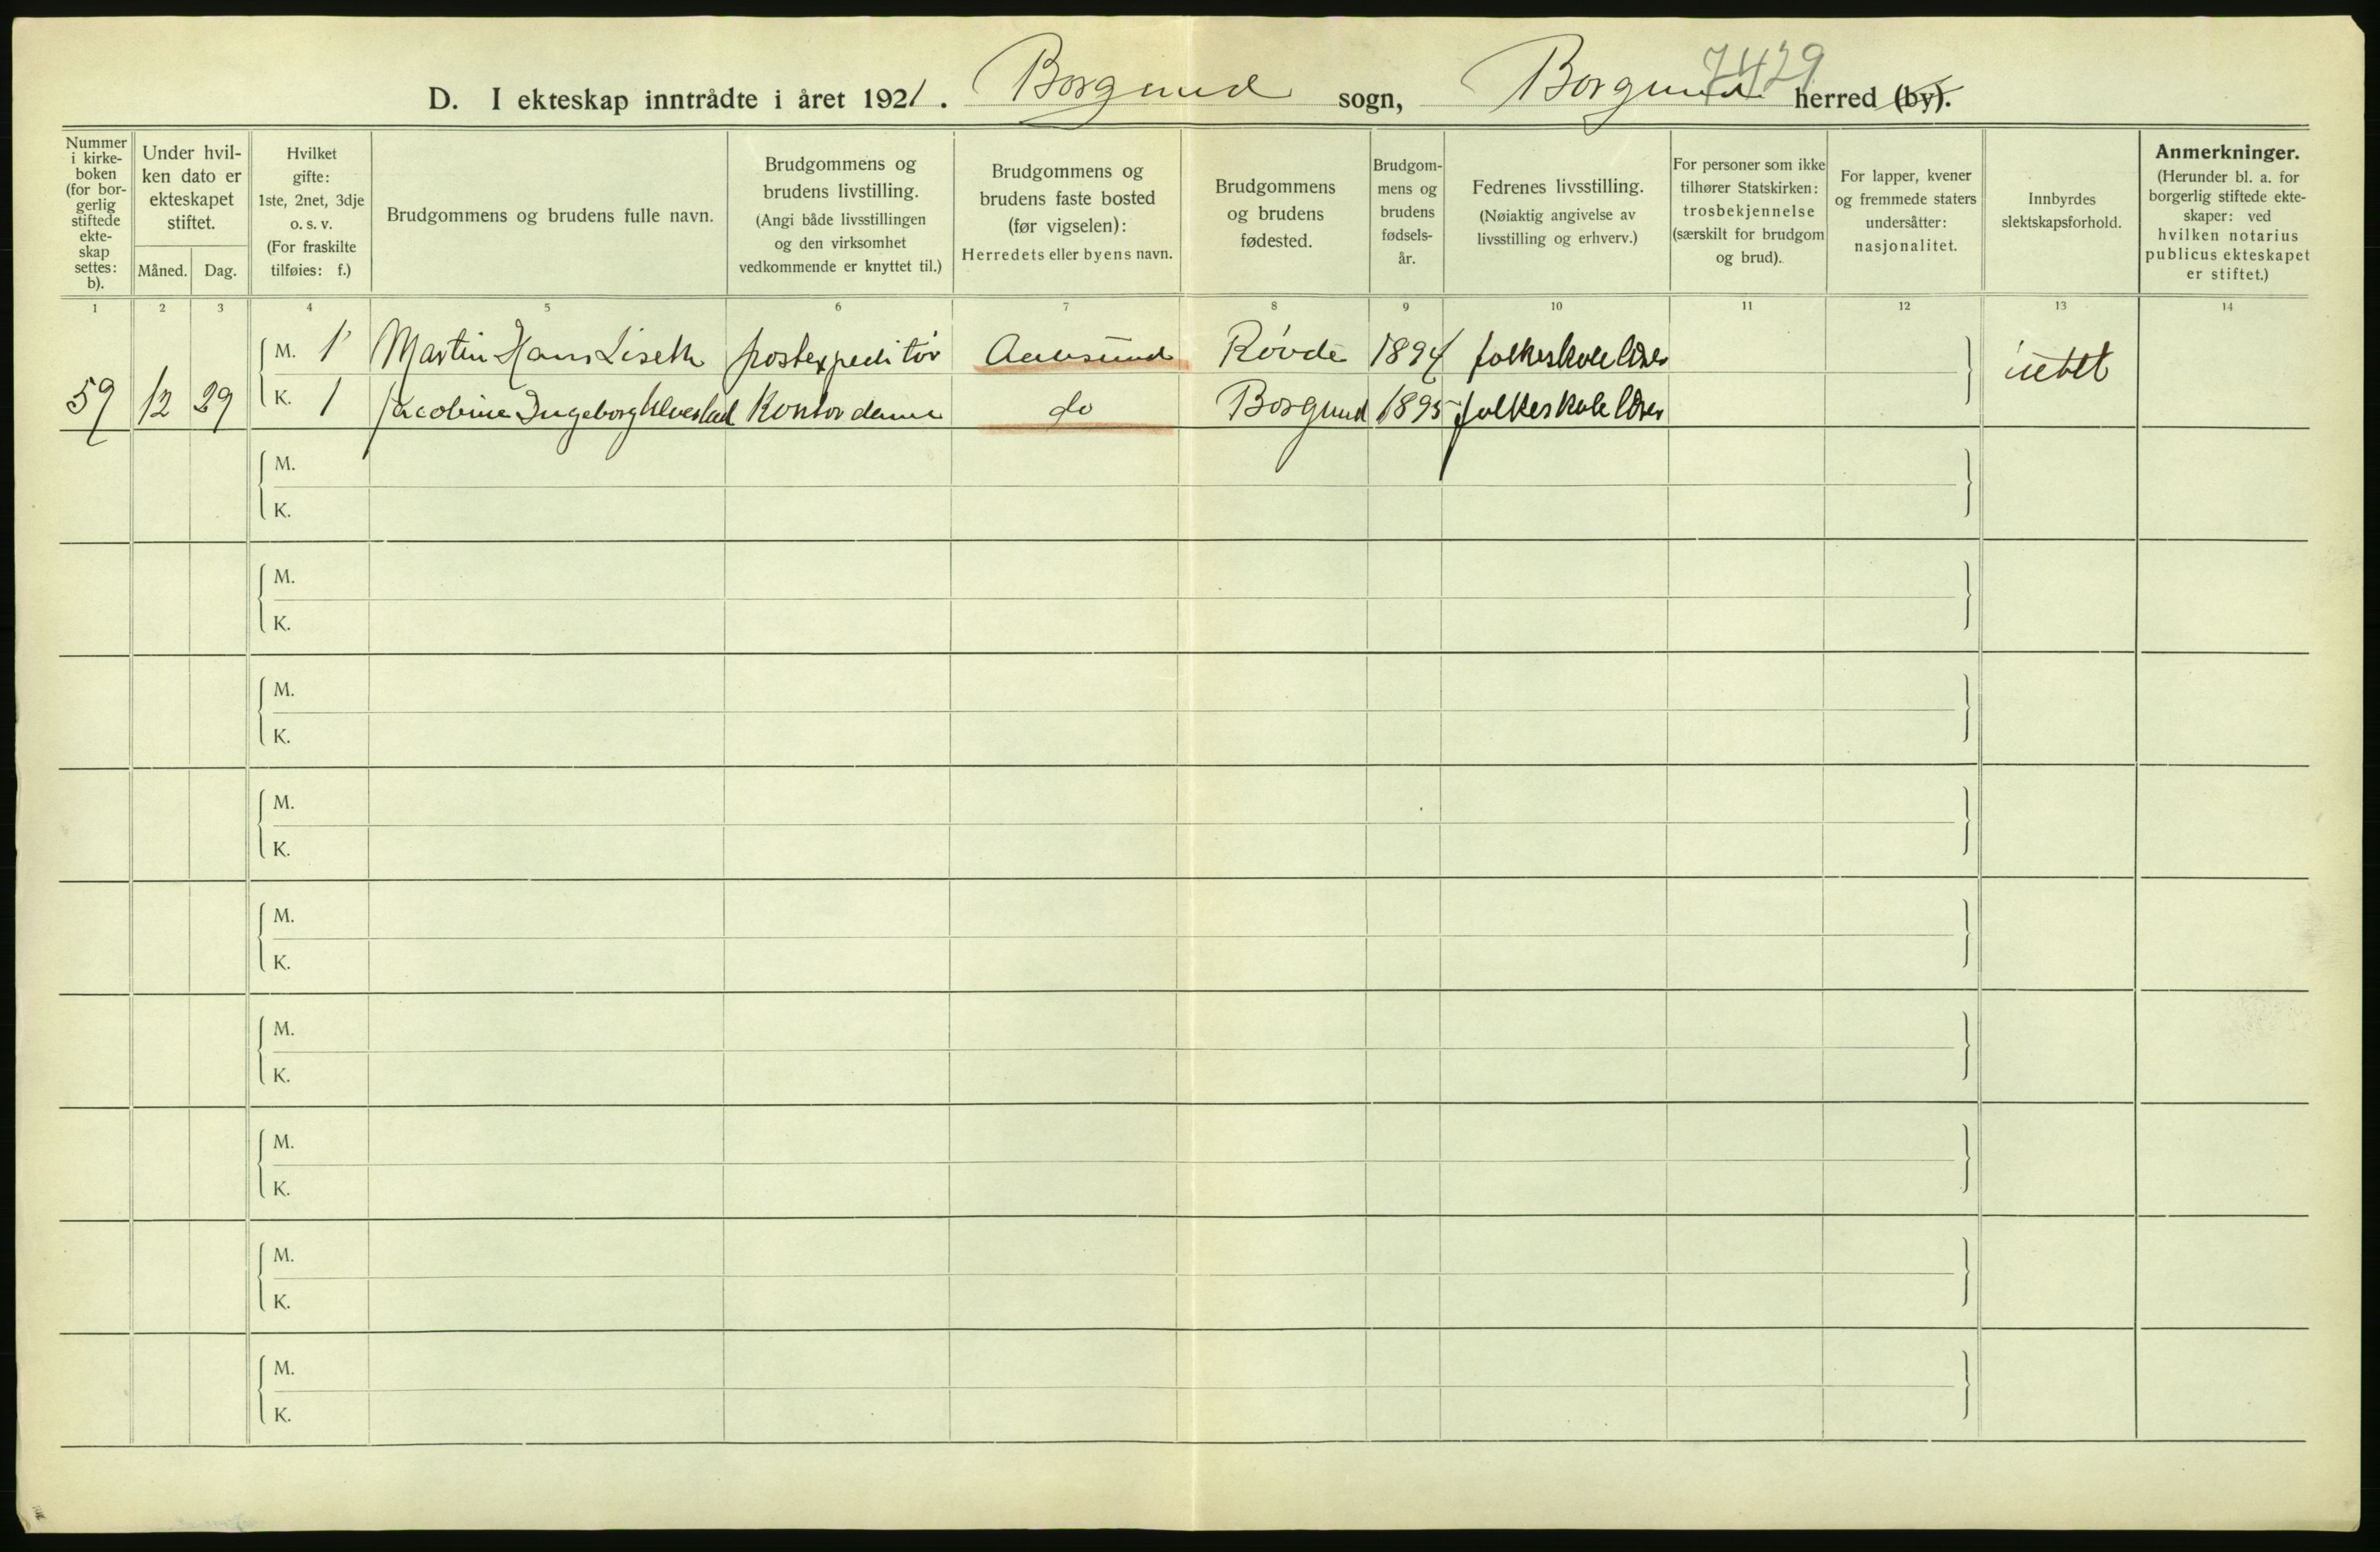 7429
D. I ekteskap inntrådte i året 1921. Borgund sogn, Borgund herred (by).
Nummer i kirke-boken (for bor-gerlig stiftede ekte-skap settes: b).
Under hvil-ken dato er ekteskapet stiftet.
Måned. Dag.
Hvilket gifte: 1ste, 2net, 3dje o. s. v. (For fraskilte tilføies: f.)
Brudgommens og brudens fulle navn.
Brudgommens og brudens livstilling. (Angi både livsstillingen og den virksomhet vedkommende er knyttet til.)
Brudgommens og brudens faste bosted (før vigselen): Herredets eller byens navn.
Brudgommens og brudens fødested.
Brudgom-mens og brudens fødsels-år.
Fedrenes livsstilling. (Nøiaktig angivelse av livsstilling og erhverv.)
For personer som ikke tilhører Statskirken: trosbekjennelse (særskilt for brudgom og brud).
For lapper, kvener og fremmede staters undersåtter: nasjonalitet.
Innbyrdes slektskapsforhold.
Anmerkninger. (Herunder bl. a. for borgerlig stiftede ekte-skaper: ved hvilken notarius publicus ekteskapet er stiftet.)
1 2 3 4 5 6 7 8 9 10 11 12 13 14
M. 1 Martin Hans Liseth postexpeditør Aalesund Rovde 1894 folkeskolelærer
59 12 29 K. 1 Jacobine Ingeborg Ulvestad Kontordame do Borgund 1895 folkeskolelærer
intet
M.
K.
M.
K.
M.
K.
M.
K.
M.
K.
M.
K.
M.
K.
M.
K.
M.
K.